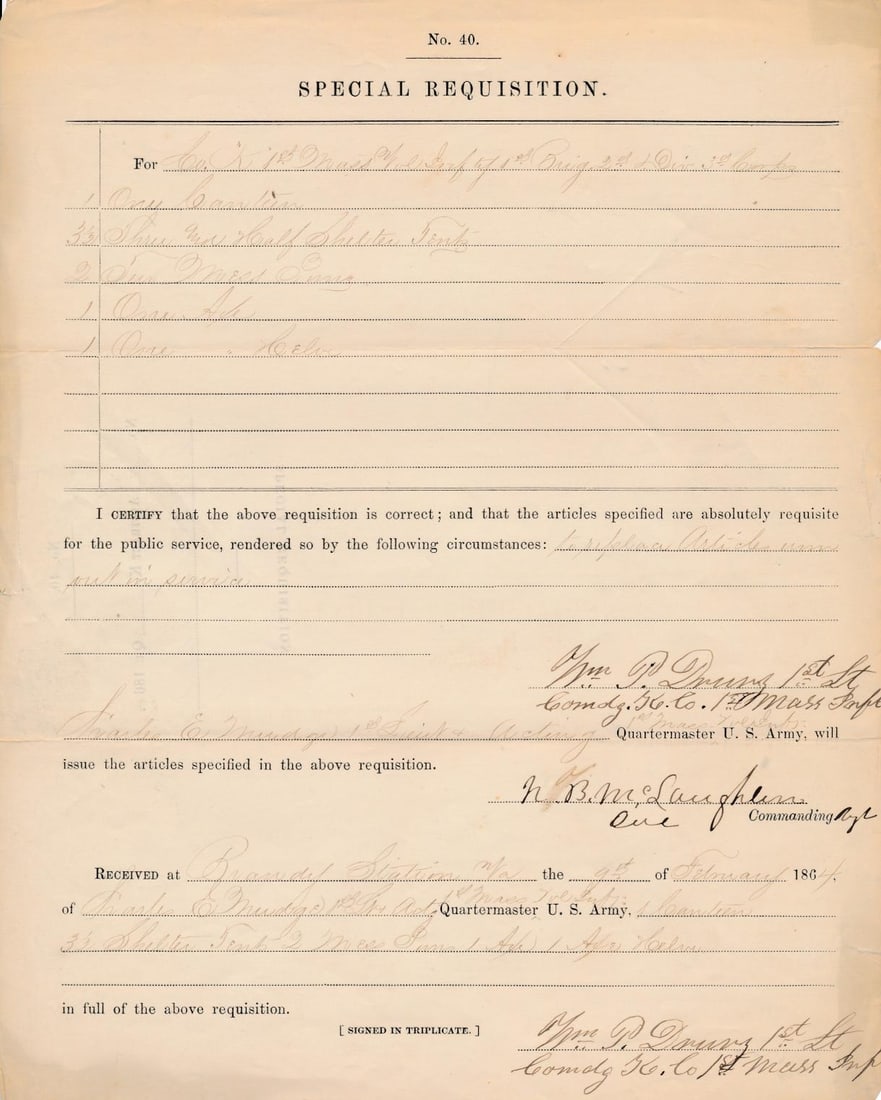 No. 40.
SPECIAL REQUISITION.
For Co. K 1st Mass Vol Inf of 1st Brig 2d Div 3d Corps
1 One Canteen
33 Three Half Shelter Tents
2 Two Mess
1 One Axe
1 One " Helve
I CERTIFY that the above requisition is correct; and that the articles specified are absolutely requisite
for the public service, rendered so by the following circumstances: to replace Articles worn
out in service
Wm P. Drury 1st Lt
Comdg. K. Co. 1st Mass Inft
1st Mass Vol Inft
Charles E. Mudge 1st Lieut & Acting Quartermaster U. S. Army, will
issue the articles specified in the above requisition.
N. B. McLaughlen
Commanding Rgt
RECEIVED at Brandy Station Va the 9th of February 1864,
1st Mass Vol Inft
of Charles E Mudge 1st Lt Actg Quartermaster U. S. Army, 1 Canteen
33 Shelter Tents 2 Mess 1 Axe 1 Axe Helve
in full of the above requisition.
[ SIGNED IN TRIPLICATE. ]
Wm P. Drury 1st Lt
Comdg K. Co 1st Mass Inf